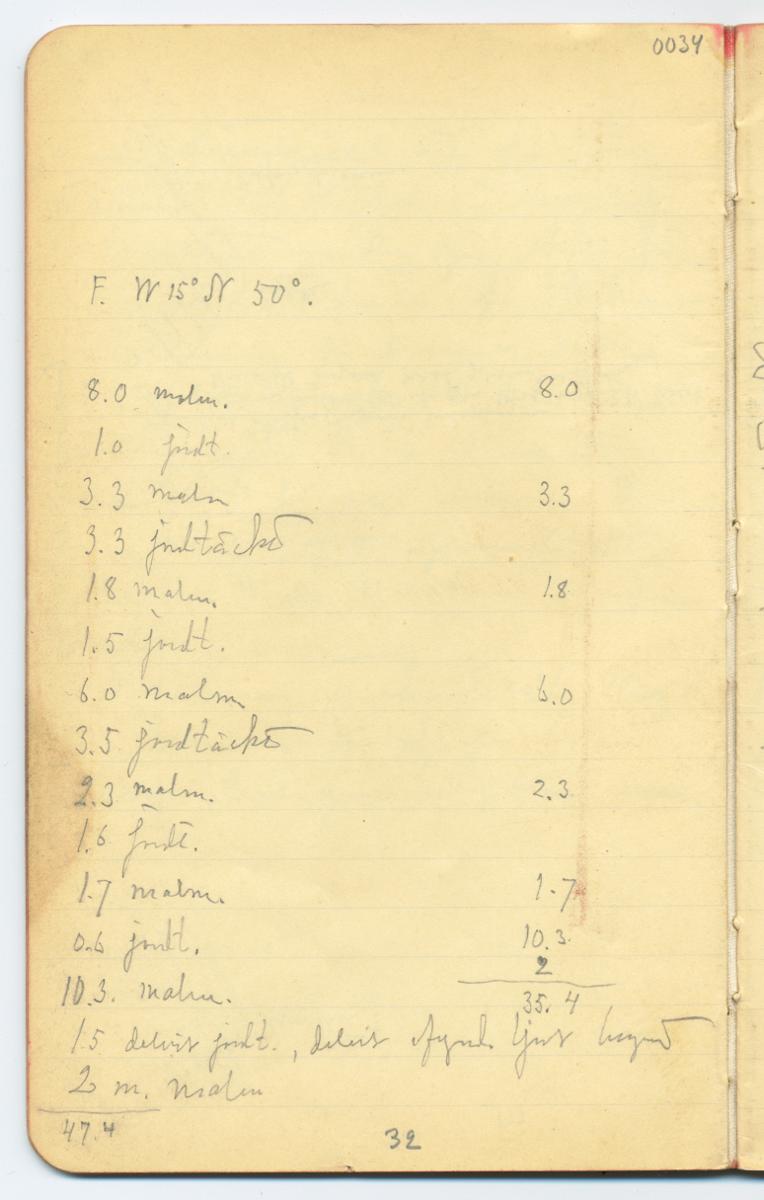 0034
F. W 15° N 50°.
8.0 malm. 8.0
1.0 jordt.
3.3 malm 3.3
3.3 jordtäckt
1.8 malm. 1.8
1.5 jordt.
6.0 malm 6.0
3.5 jordtäckt
2.3 malm. 2.3
1.6 jordt.
1.7 malm. 1.7
0.6 jordt. 10.3
2
10.3. malm. 35.4
1.5 delvis jordt., delvis ljust
2 m. malm
47.4
32